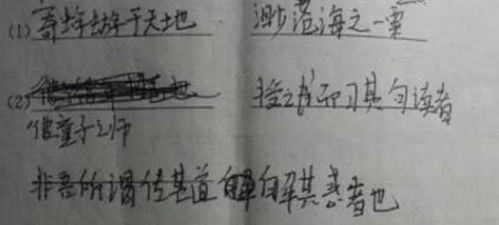 (1) 寄蜉蝣于天地 渺沧海之一粟
(2) 授之书而习其句读者
彼童子之师
非吾所谓传其道解其惑者也